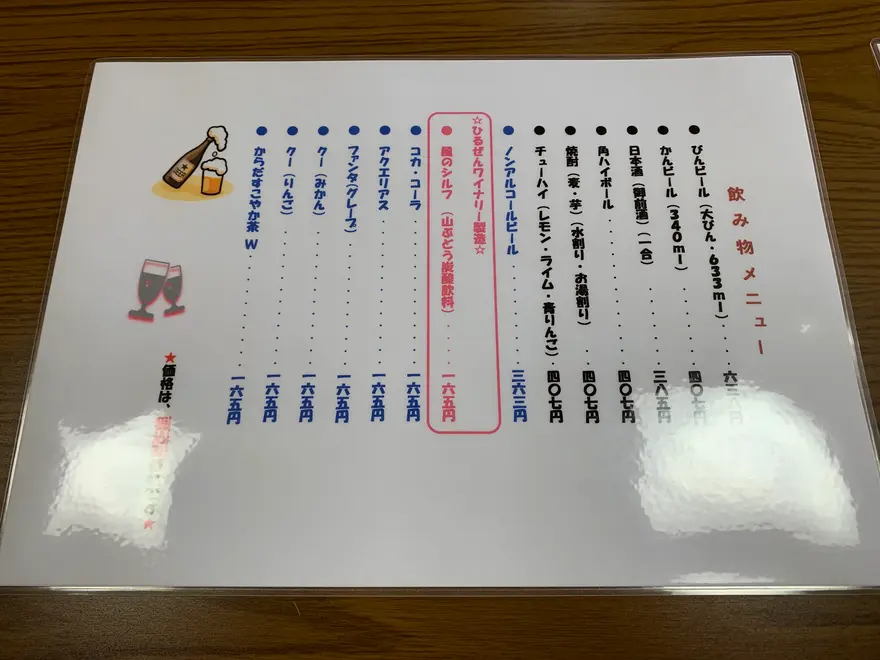 飲み物メニュー
●びんビール(大びん・633ml)
●かんビール(340ml)・・・・・四〇七円
●日本酒(御前酒)(一合)・・・・・三八五円
●角ハイボール・・・・・・・・・四〇七円
●焼酎(麦・芋)(水割り・お湯割り)・・四〇七円
●チューハイ(レモン・ライム・青りんご)・四〇七円
●ノンアルコールビール・・・・・・三六三円
☆ひるぜんワイナリー製造☆
●風のシルフ (山ぶどう炭酸飲料)・・・・一六五円
●コカ・コーラ・・・・・・・・・一六五円
●アクエリアス・・・・・・・・・一六五円
●ファンタ(グレープ)・・・・・・・・一六五円
●クー(みかん)・・・・・・・・・一六五円
●クー(りんご)・・・・・・・・・一六五円
●からだすこやか茶 W・・・・・・・一六五円
★価格は、